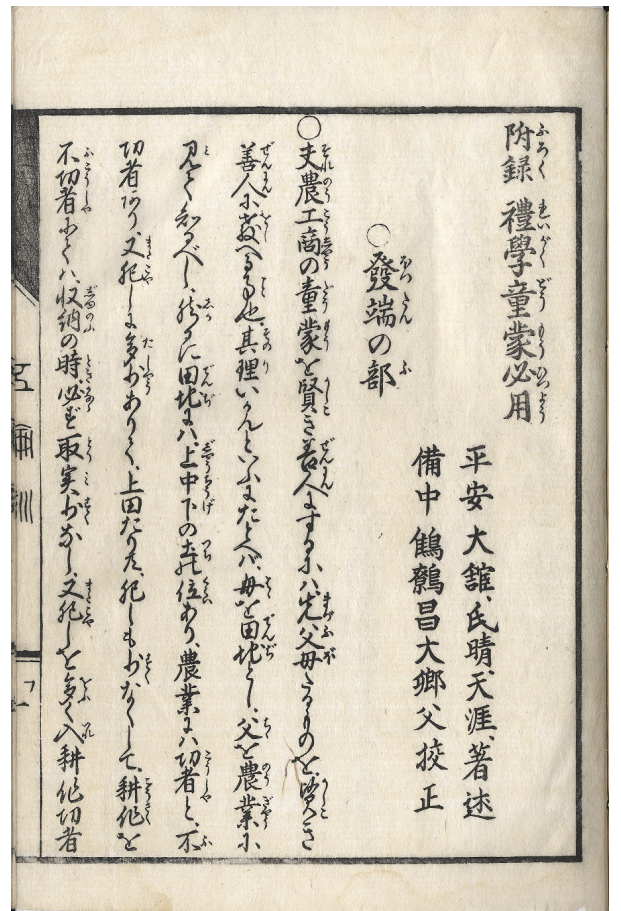 附録 禮學童蒙必用
平安 大舘、氏晴、天涯、著述
備中 鷦鷯昌大郷父挍正
○發端の部
○夫農工商の童蒙を賢き善人にするには、先父母たるものを、賢き
善人に教へる事也、其理いかんといふにたとへバ、母を田地とし、父を農業に
見て知るべし、然るに田地にハ、上中下の土地位あり、農業にハ功者と、不
功者あり、又肥しに多少ありて、上田たり共、肥しも少なくして、耕作を
不功者にてハ、収納の時、必ず取実少なし、又肥しを多く入耕作功者